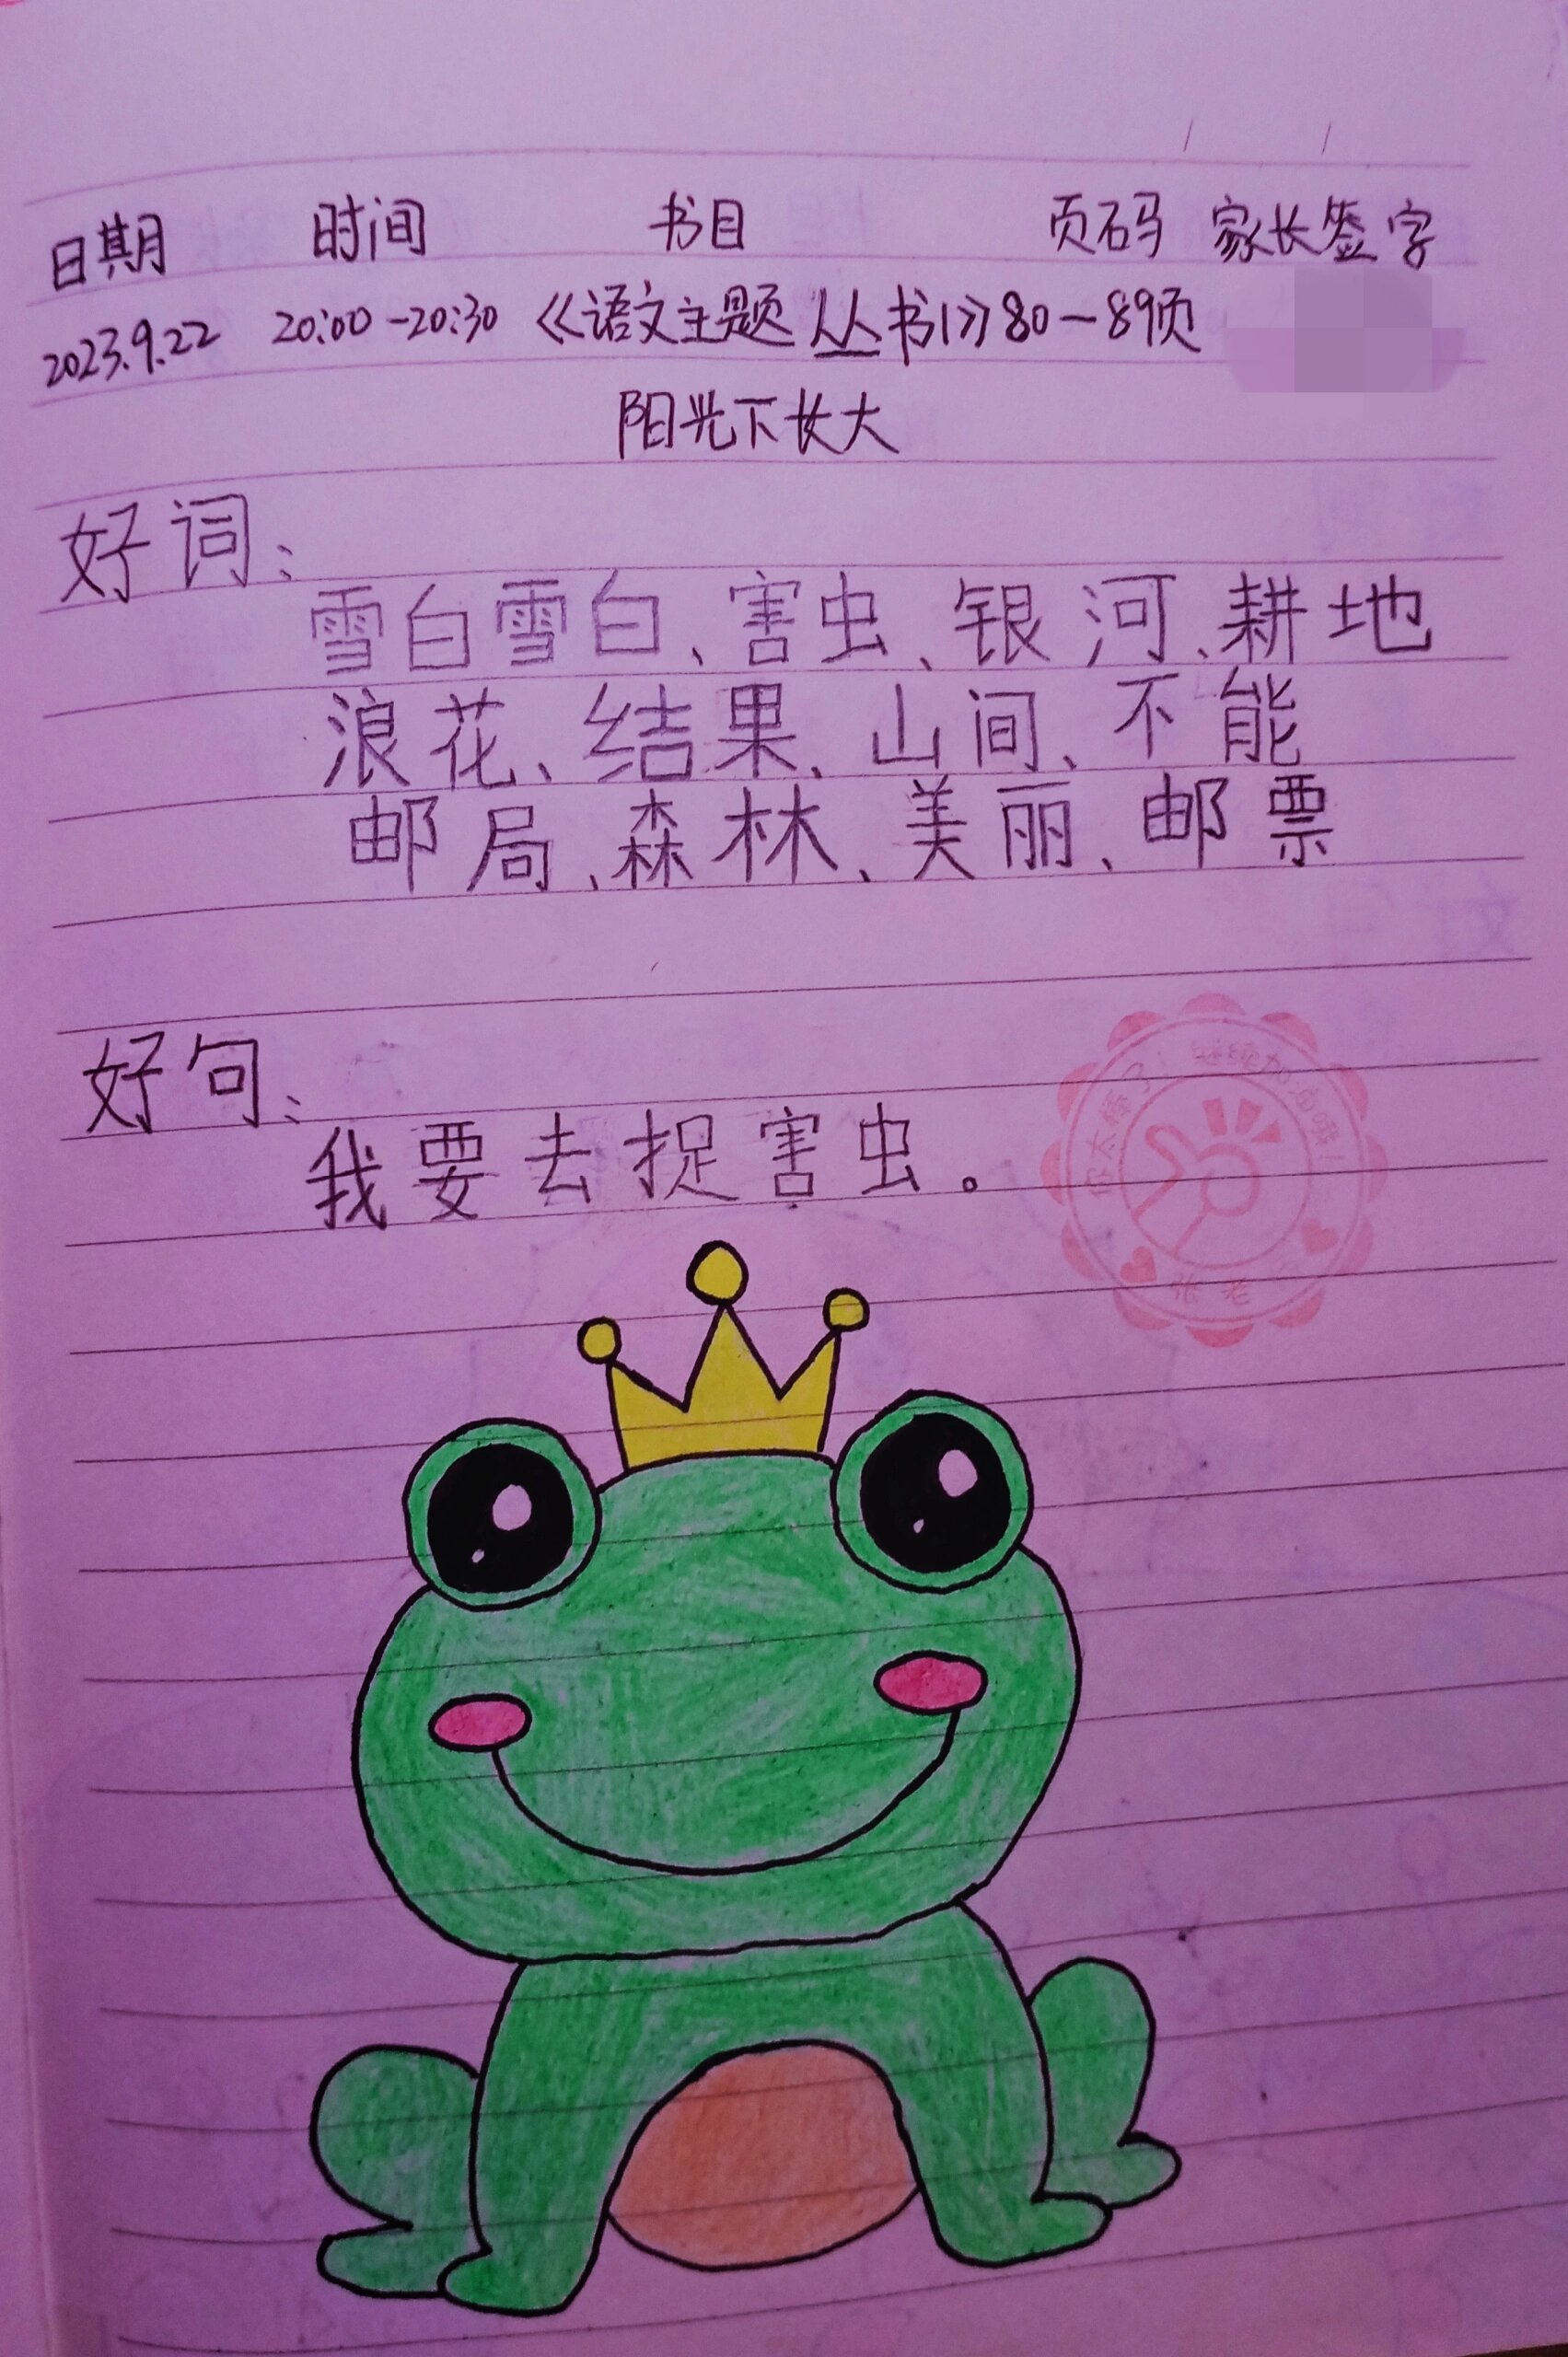 日期 时间 书目 页码 家长签字
2023.9.22 20:00-20:30 《语文主题丛书1》80-89页
阳光下长大
好词:
雪白雪白、害虫、银河、耕地
浪花、结果、山间、不能
邮局、森林、美丽、邮票
好句:
我要去捉害虫。
你太棒了!继续加油哦!
张老